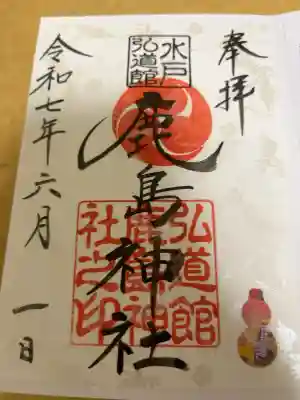 奉拝
水戸
弘道館
鹿島神社
弘道館
鹿島神
社之印
令和七年六月一日